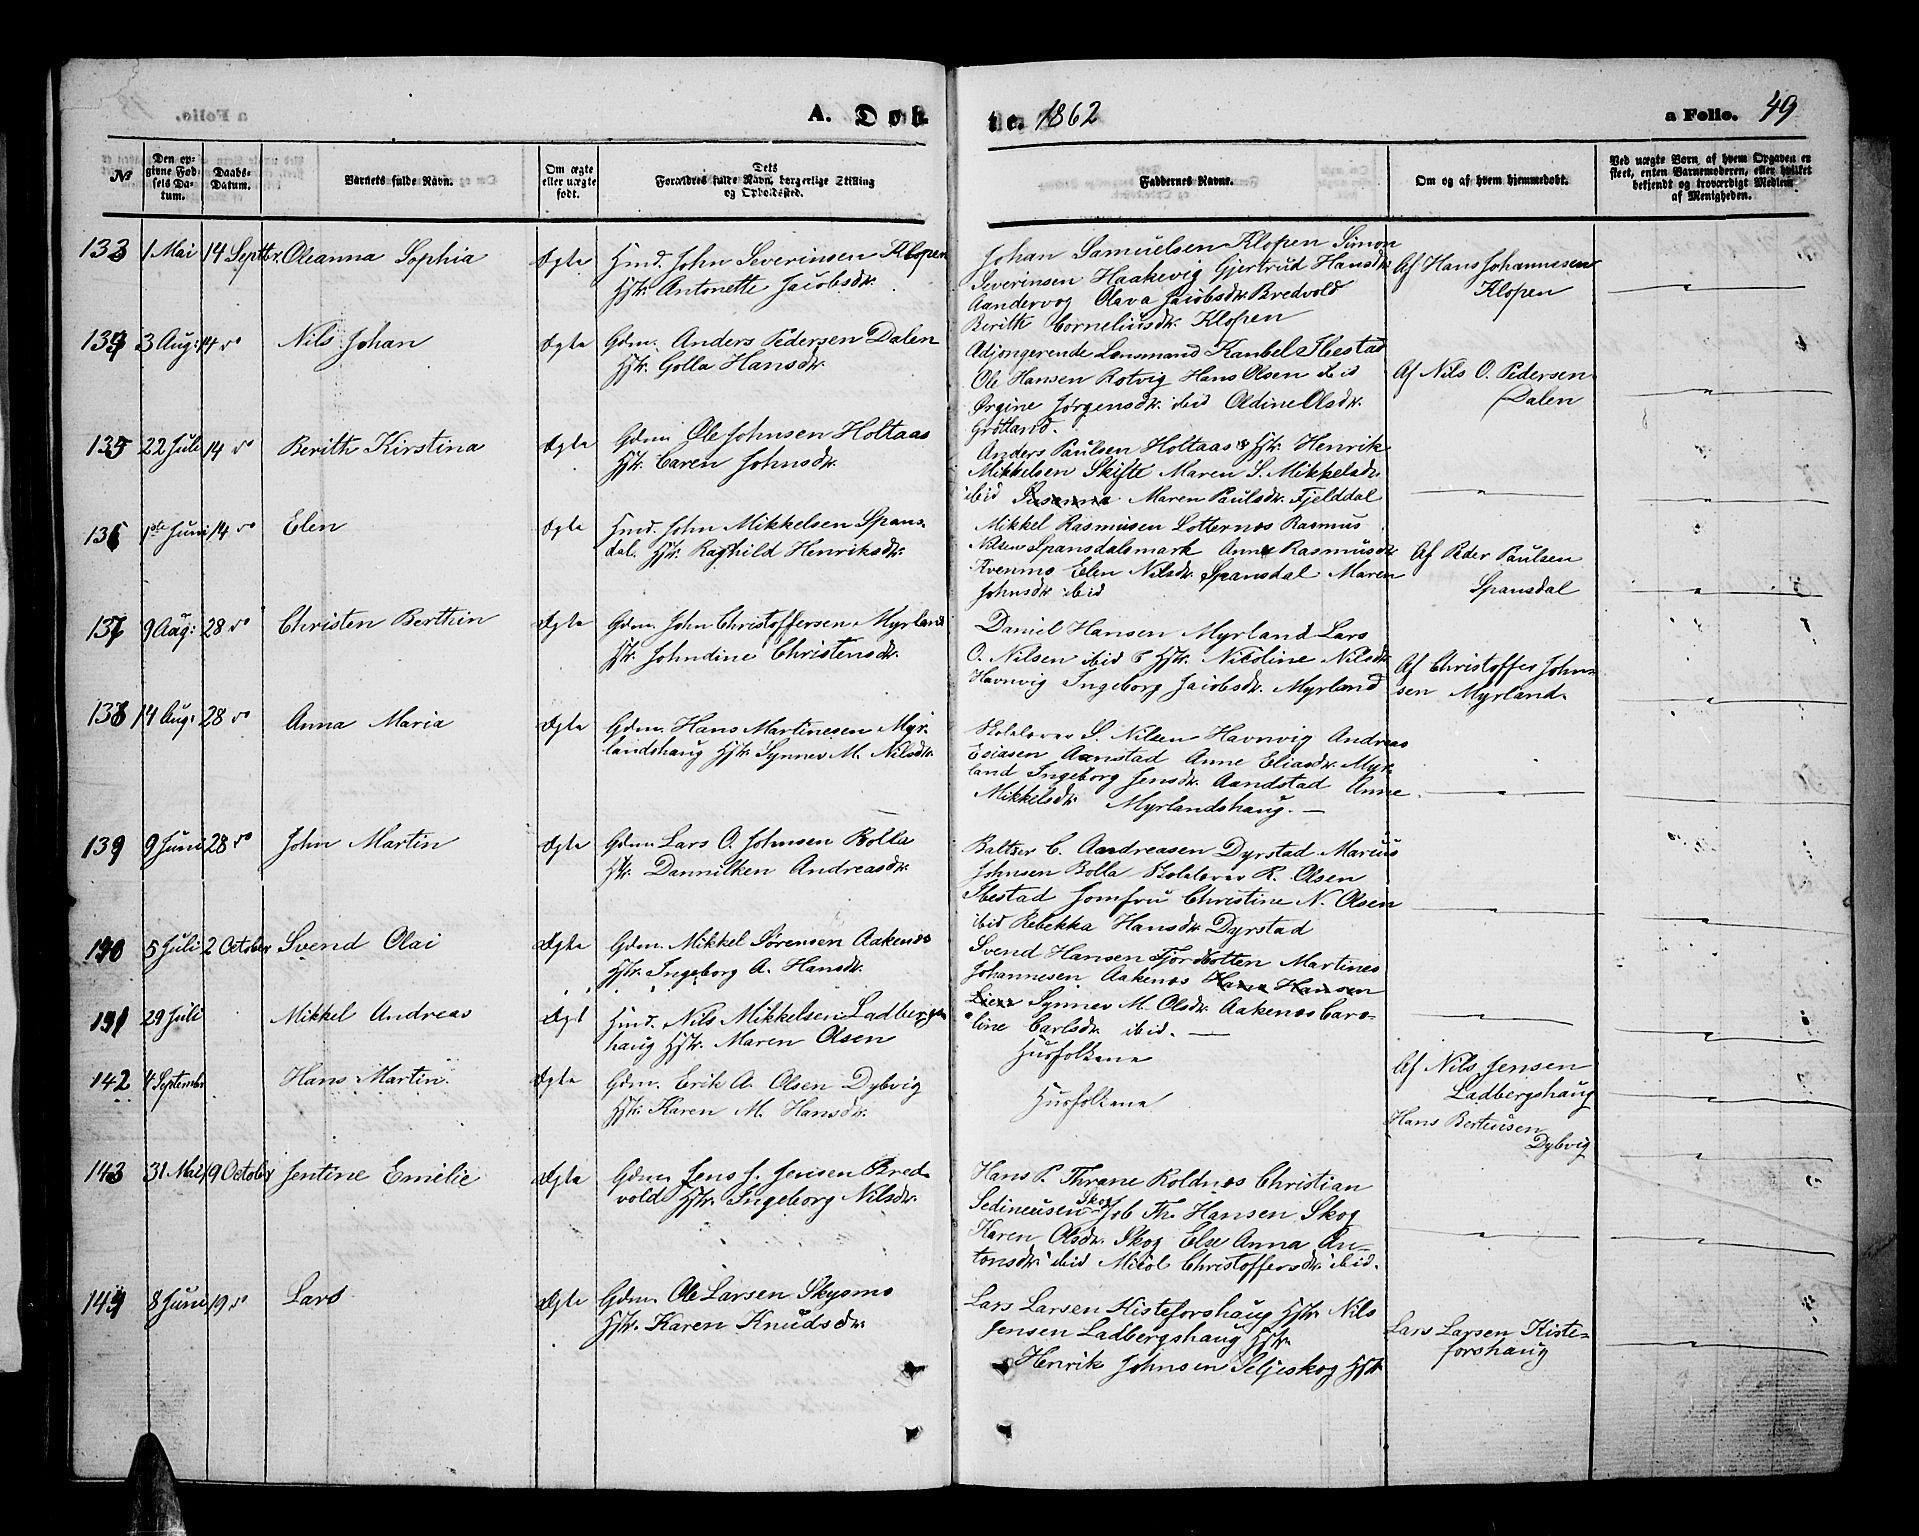 A. Døb-
te. 1862
a Folio. 49
№
Den op-
givne Fød-
sels Da-
tum.
Daabs-
Datum.
Barnets fulde Navn.
Om ægte
eller uægte
født.
Dets
Forældres fulde Navn, borgerlige Stilling
og Opholdssted.
Faddernes Navne.
Om og af hvem hjemmedøbt.
Ved uægte Børn, af hvem Opgaven er
skeet, enten Barnemoderen, eller hvilket
bekjendt og troværdigt Medlem
af Menigheden.
133 1 Mai 14 Septbr. Oleanna Sophia Ægte Hmd. John Severinsen Klopen
Hstr. Antonette Jacobsdr.
Johan Samuelsen Klopen Simon
Severinsen Haakevig Gjertrud Hansdr.
Aandervog Olava Jacobsdr. Bredvold
Berith Corneliusdr. Klopen
Af Hans Johannesen
Klopen
134 3 Aug: 14 do Nils Johan Ægte Gdm. Anders Pedersen Dalen
Hstr. Golla Hansdr.
Adjongerende Lensmand Kanbel Ibestad
Ole Hansen Rotvig Hans Olsen ibid
Ørgine Jørgensdr. ibid Oldine Olsdr.
Grotland.
Af Nils O. Pedersen
Dalen
135 22 Juli 14 do Berith Kirstina Ægte Gdm. Ole Johnsen Holtaas
Hstr. Caren Johnsdr.
Anders Paulsen Holtaas & Hstr. Henrik
Mikkelsen Skifte Maren S. Mikkelsdr.
ibid Susanna Maren Paulsdr. Fjelddal
136 1ste Juni 14 do Elen Ægte Hmd. John Mikkelsen Spans-
dal. Hstr. Raghild Henriksdr.
Mikkel Rasmusen Lotternes Rasmus
Nilsen Spansdalsmark Anne Rasmusdr
Kvenmo Elen Nilsdr. Spansdal Maren
Johnsdr. ibid
Af Peder Paulsen
Spansdal
137 9 Aug: 28 do Christen Berthin Ægte Gdm. John Christoffersen Myrland
Hstr. Johndine Christensdr.
Daniel Hansen Myrland Lars
O. Nilsen ibid & Hstr. Nicoline Nilsdr
Havnvig Ingeborg Jacobsdr. Myrland
Af Christoffer John-
sen Myrland.
138 14 Aug: 28 do Anna Maria Ægte Gdm. Hans Martinesen Myr-
landshaug Hstr. Synnev M. Nilsdr.
Skolelærer S. Nilsen Havnvig Andreas
Esiasen Aanstad Anne Eliasdr. Myr-
land Ingeborg Jensdr. Aandstad Anne
Mikkelsdr. Myrlandshaug. —
139 9 Juni 28 do John Martin Ægte Gdm. Lars O. Johnsen Bolla
Hstr. Dannilken Andreasdr.
Baltzer C. Aandreasen Dyrstad Marius
Johnsen Bolla Skolelærer R. Olsen
Ibestad Jomfru Christine N. Olsen
ibid Rebekka Hansdr. Dyrstad
140 5 Juli 2 October Svend Olai Ægte Gdm. Mikkel Sørensen Aakenes
Hstr. Ingeborg A. Hansdr.
Svend Hansen Fjordbotten Martines
Johannesen Aakenes Hans Hansen
Lien Synnev M. Olsdr. Aakenes Caro-
line Carlsdr. ibid. —
141 29 Juli Mikkel Andreas Ægt Hmd. Nils Mikkelsen Ladbergs-
haug Hstr. Maren Olsen
Husfolkene
Af Nils Jensen
Ladbergshaug
142 4 Septembr Hans Martin. Ægte Gdm. Erik A. Olsen Dybvig
Hstr. Karen M. Hansdr.
Husfolkene
Hans Berteusen
Dybvig
143 31 Mai 19 October Jentine Emelie Ægte Gdm. Jens J. Jensen Bred-
vold Hstr. Ingeborg Nilsdr.
Hans P. Thrane Roldnes Christian
Sedineusen Skog Job Th. Hansen Skog
Karen Olsdr. Skog Else Anna An-
tonsdr. ibid Micol Christoffersdr. ibid.
144 8 Juni 19 do Lars Ægte Gdm. Ole Larsen Skysmo
Hstr. Karen Knudsdr.
Lars Larsen Kisteforshaug Hstr. Nils
Jensen Ladbergshaug Hstr.
Henrik Johnsen Seljeskog Hstr
Lars Larsen Kiste-
forshaug